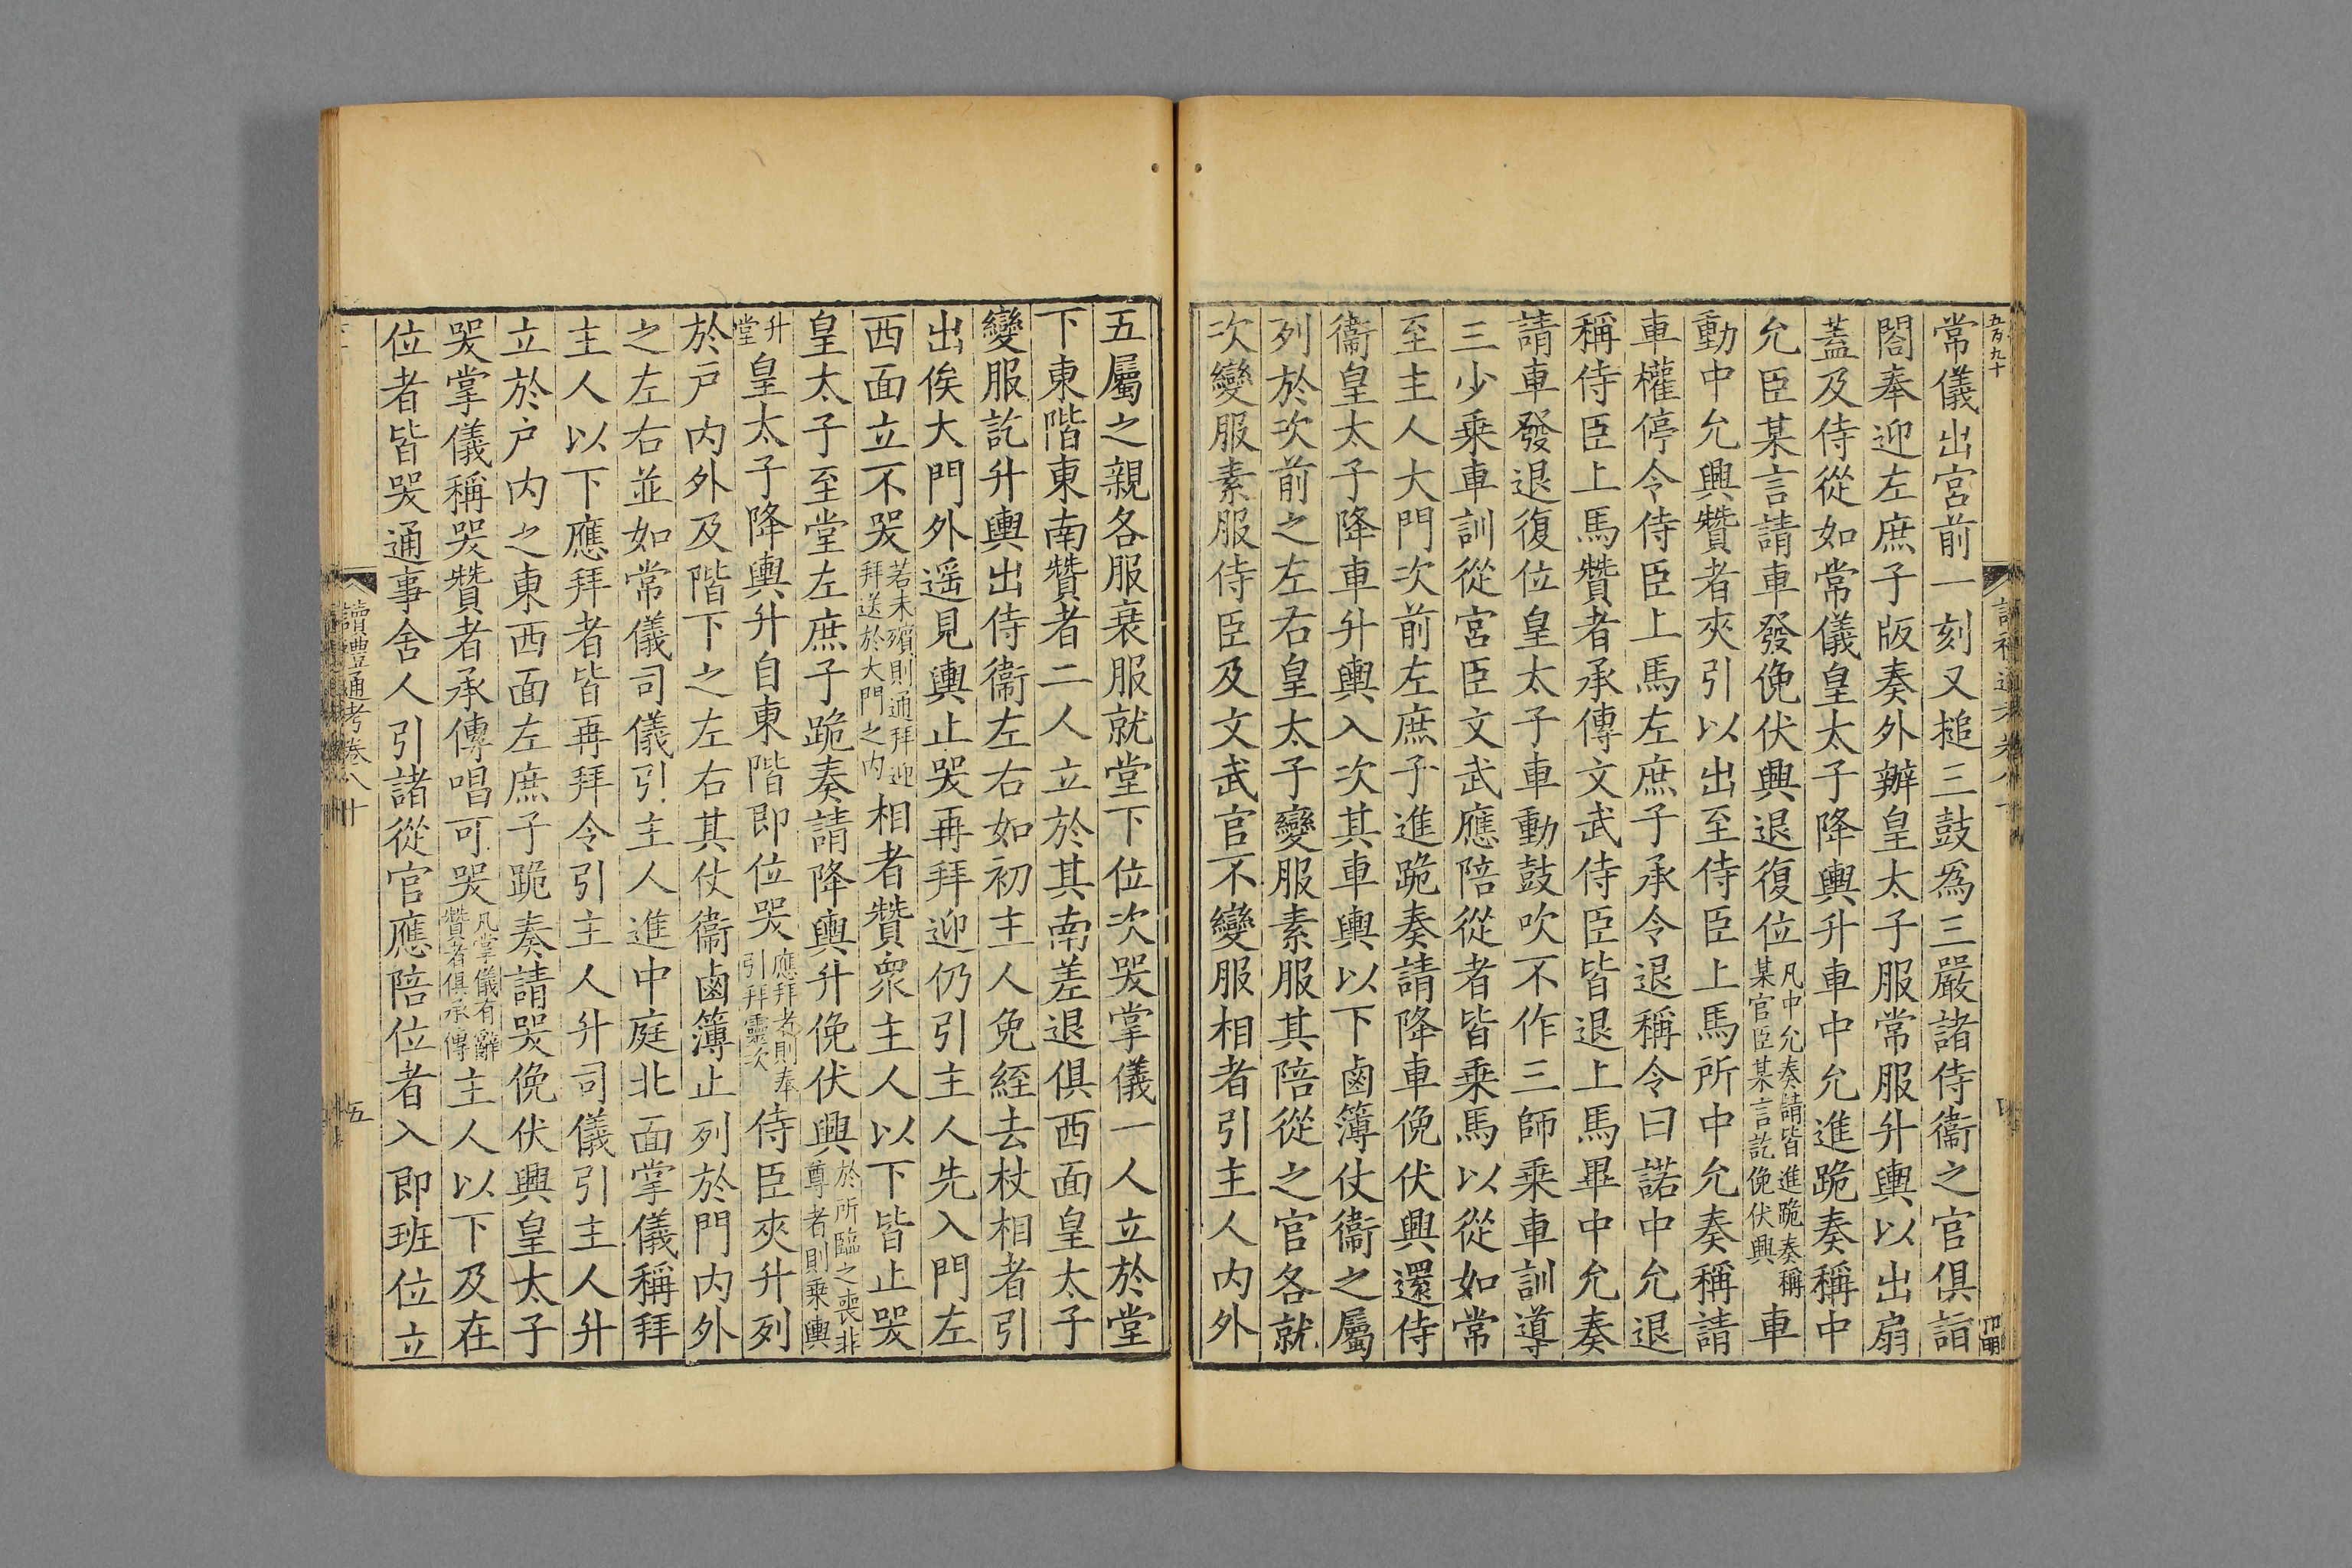 五百九十
讀禮通考卷八十
四
常儀出宮前一刻又搥三鼓爲三嚴諸侍衞之官俱詣
閤奉迎左庶子版奏外辦皇太子服常服升輿以出扇
蓋及侍從如常儀皇太子降輿升車中允進跪奏稱中
允臣某言請車發俛伏興退復位凡中允奏請皆進跪奏稱某官臣某言訖俛伏興車
動中允興贊者夾引以出至侍臣上馬所中允奏稱請
車權停令侍臣上馬左庶子承令退稱令曰諾中允退
稱侍臣上馬贊者承傳文武侍臣皆退上馬畢中允奏
請車發退復位皇太子車動鼓吹不作三師乗車訓導
三少乗車訓從宮臣文武應陪從者皆乗馬以從如常
至主人大門次前左庶子進跪奏請降車俛伏興還侍
衞皇太子降車升輿入次其車輿以下鹵簿仗衞之屬
列於次前之左右皇太子變服素服其陪從之官各就
次變服素服侍臣及文武官不變服相者引主人内外
五屬之親各服衰服就堂下位次哭掌儀一人立於堂
下東階東南贊者二人立於其南差退俱西面皇太子
變服訖升輿出侍衞左右如初主人免絰去杖相者引
出俟大門外遥見輿止哭再拜迎仍引主人先入門左
西面立不哭若未殯則通拜迎拜送於大門之内相者贊衆主人以下皆止哭
皇太子至堂左庶子跪奏請降輿升俛伏興於所臨之喪非尊者則乗輿
升堂皇太子降輿升自東階即位哭應拜者則奉引拜靈次侍臣夾升列
於戸内外及階下之左右其仗衞鹵簿止列於門内外
之左右並如常儀司儀引主人進中庭北面掌儀稱拜
主人以下應拜者皆再拜令引主人升司儀引主人升
立於戸内之東西面左庶子跪奏請哭俛伏興皇太子
哭掌儀稱哭贊者承傳唱可哭凡掌儀有辭贊者俱承傳主人以下及在
位者皆哭通事舍人引諸從官應陪位者入即班位立
讀禮通考卷八十
五